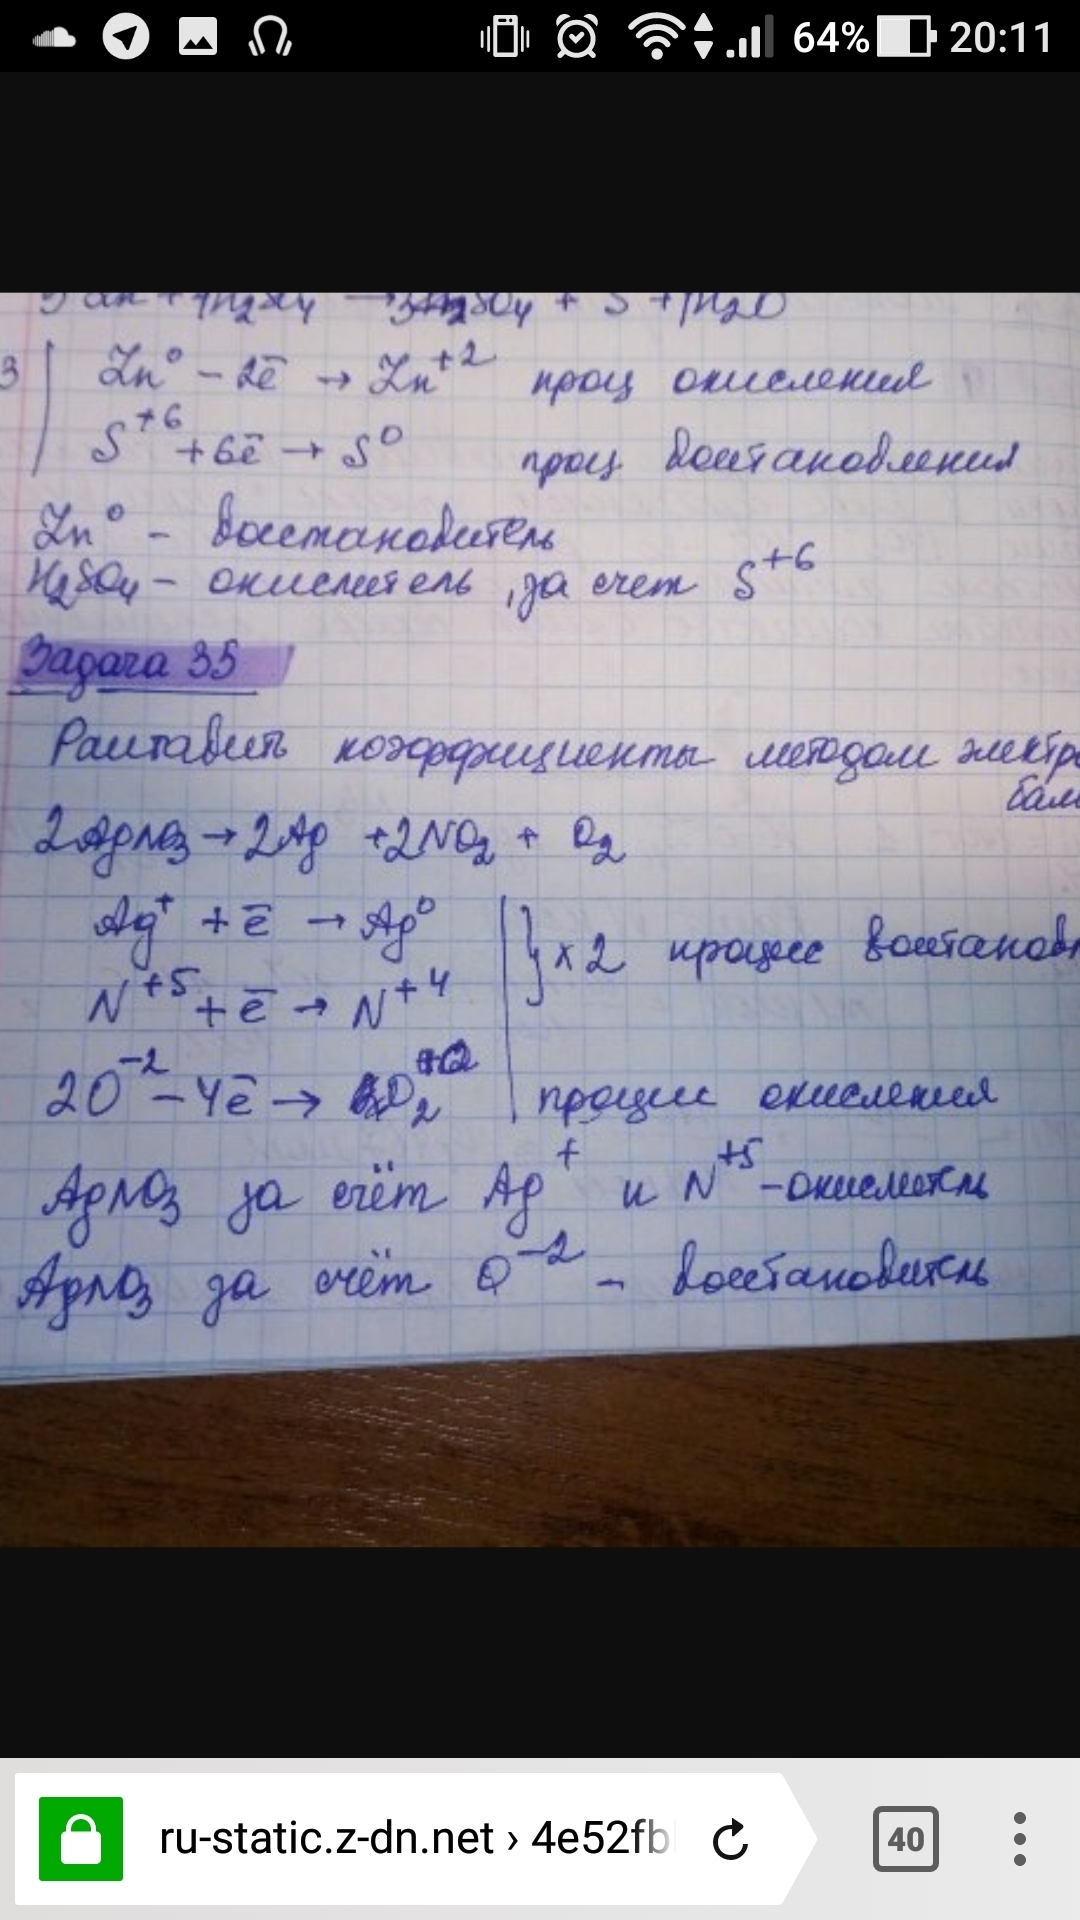 64% 20:11
3 Zn + 4H₂SO₄ → 3 SO₄ + S + H₂O
3 Zn⁰ - 2ē → Zn⁺² проц окисления
S⁺⁶ + 6ē → S⁰ проц восстановления
Zn⁰ - восстановитель
H₂SO₄ - окислитель, за счет S⁺⁶
Задача 35
Расставить коэффициенты методом электро
бал
2AgNO₃ → 2Ag + 2NO₂ + O₂
Ag⁺ + ē → Ag⁰
} x2 процесс восстанов
N⁺⁵ + ē → N⁺⁴
2O⁻² - 4ē → O₂ процесс окисления
AgNO₃ за счёт Ag⁺ и N⁺⁵ - окислитель
AgNO₃ за счёт O⁻² - восстановитель
ru-static.z-dn.net › 4e52fb 40